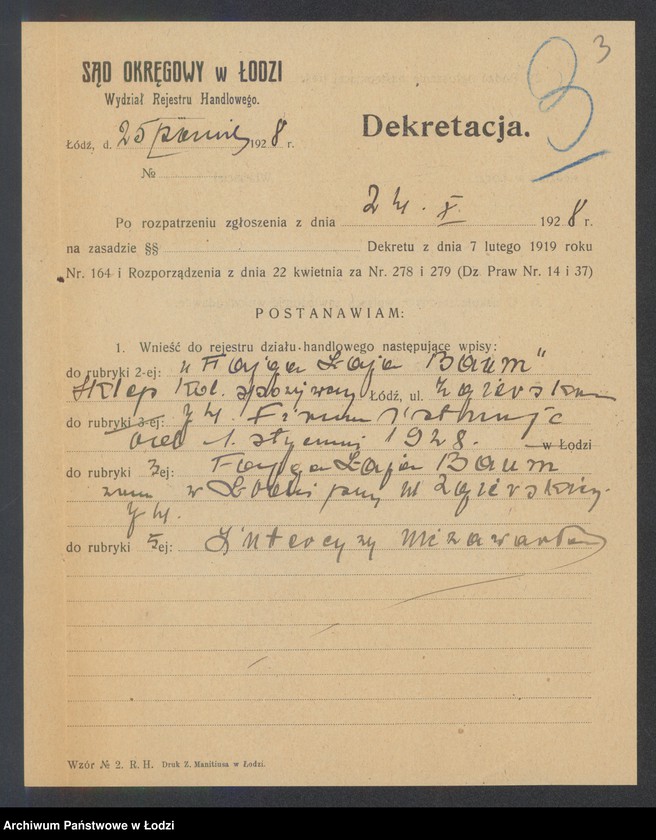 3
3
SĄD OKRĘGOWY w ŁODZI
Wydział Rejestru Handlowego.
Dekretacja.
Łódź, d. 25 1928 r.
№
Po rozpatrzeniu zgłoszenia z dnia 24. X. 1928 r.
na zasadzie §§ Dekretu z dnia 7 lutego 1919 roku
Nr. 164 i Rozporządzenia z dnia 22 kwietnia za Nr. 278 i 279 (Dz Praw Nr. 14 i 37)
POSTANAWIAM:
1. Wnieść do rejestru działu handlowego następujące wpisy:
do rubryki 2-ej: „Fajga Łaja Baum”
Sklep kol. spożywczy Łódź, ul. Zgierska
do rubryki 3-ej: 74. Firma istnieje
od 1. stycznia 1928. w Łodzi
do rubryki 3ej: Fajga Łaja Baum
zam w Łodzi przy ul Zgierskiej
74.
do rubryki 5ej: Intercyzy nie zawarła
Wzór № 2. R. H. Druk Z. Manitiusa w Łodzi.
Archiwum Państwowe w Łodzi